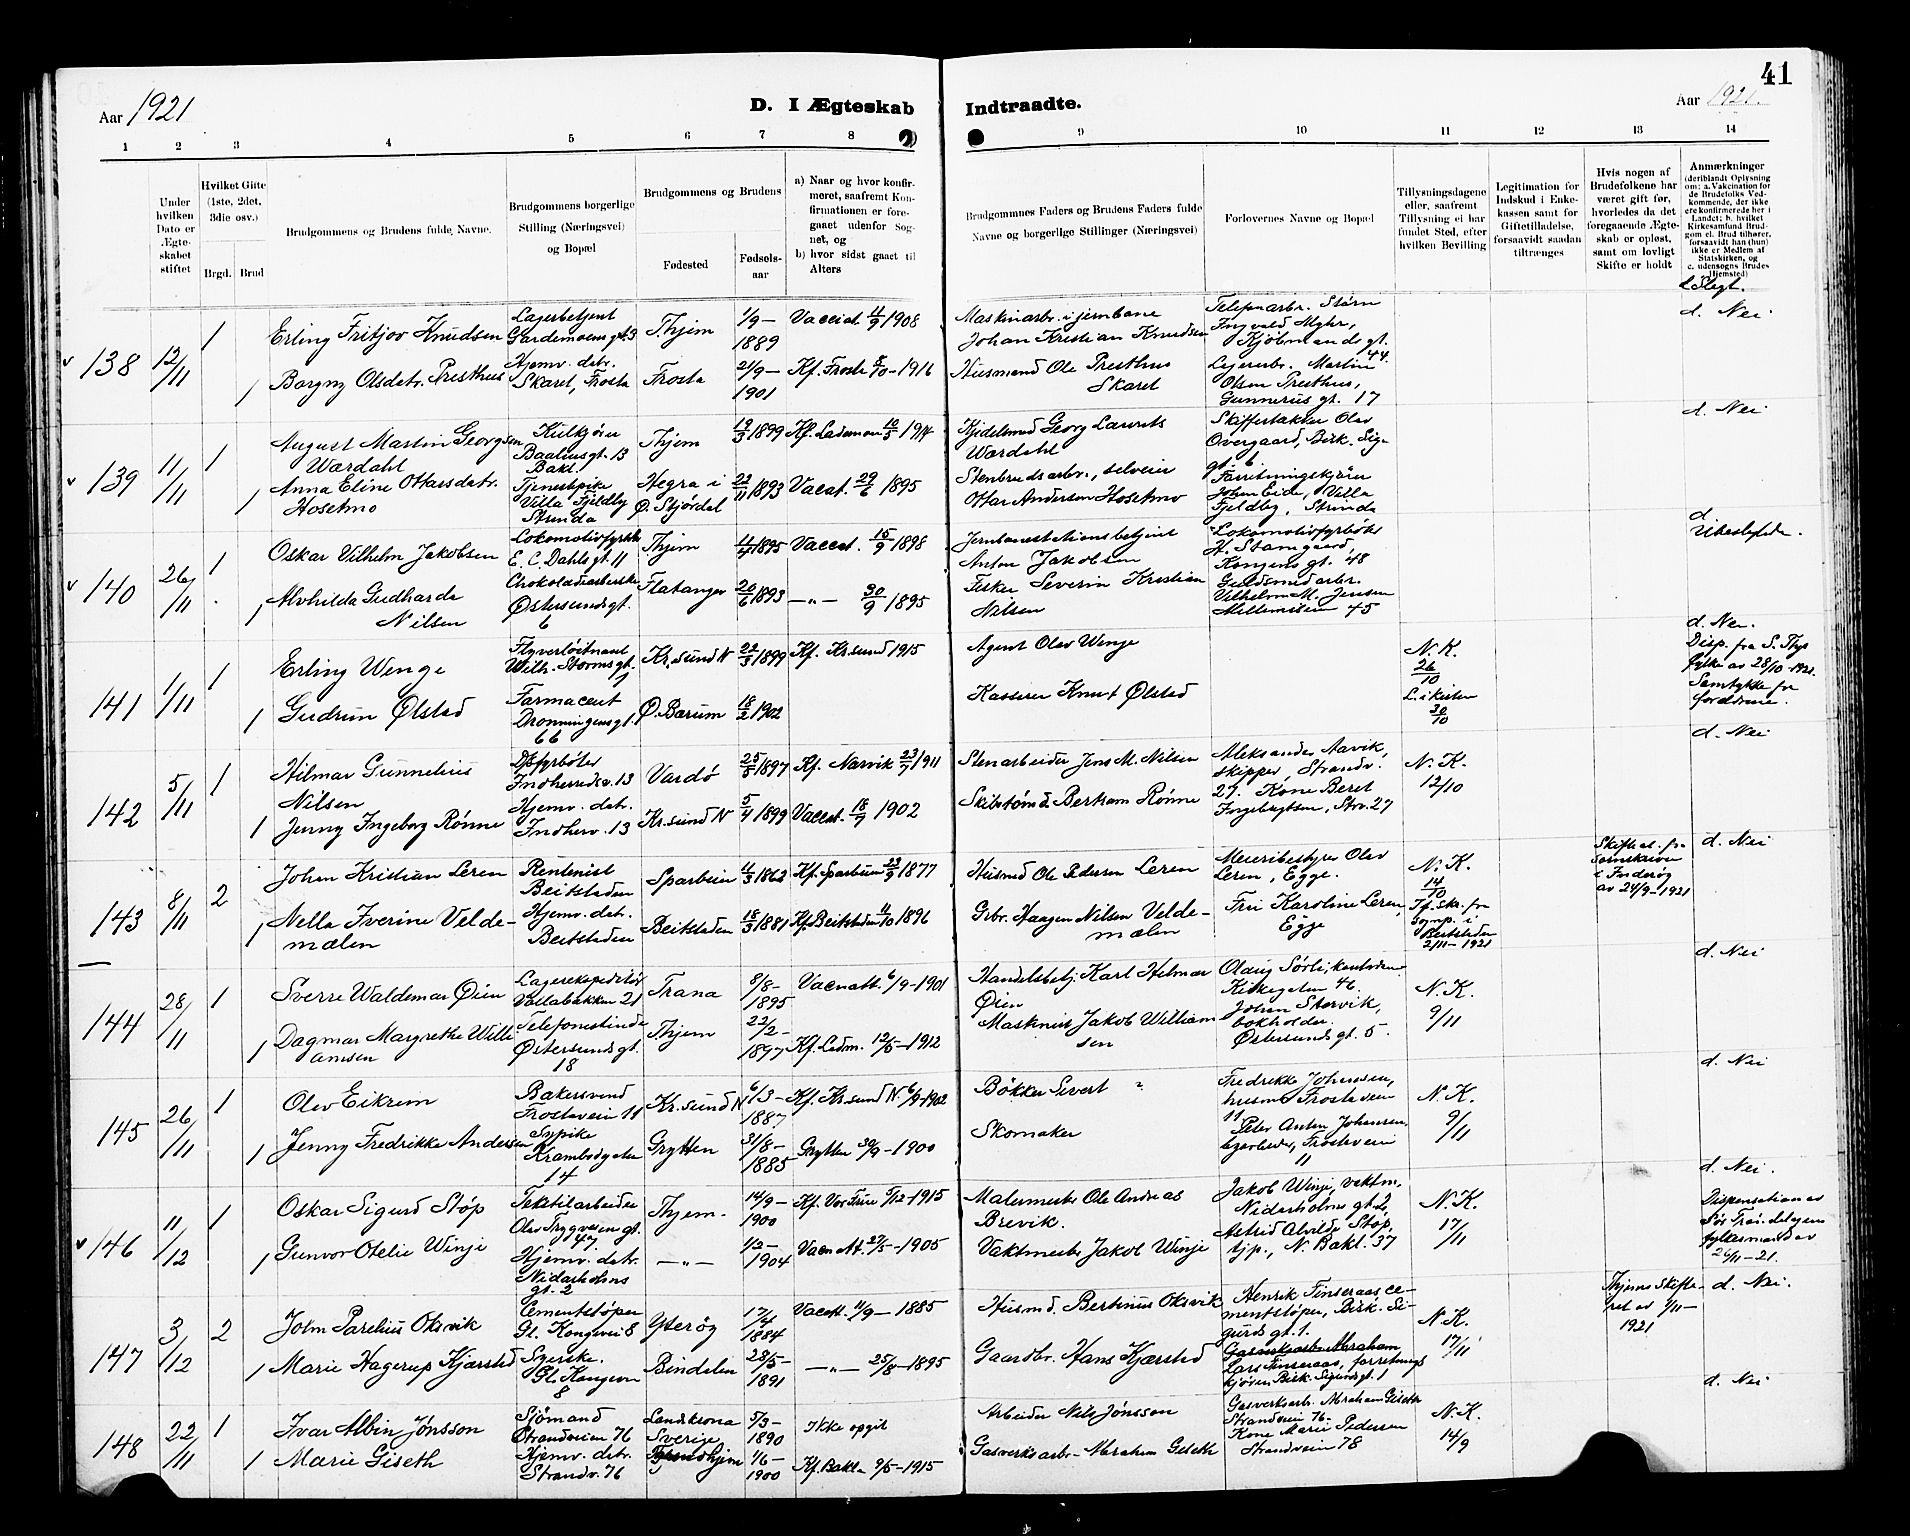 41
Aar 1921
D. I Ægteskab
Indtraadte.
Aar 1921.
1 2 3 4 5 6 7 8 9 10 11 12 13 14
Under hvilken Dato er Ægteskabet stiftet
Hvilket Gifte (1ste, 2det, 3die osv.)
Brgd. Brud
Brudgommens og Brudens fulde Navne.
Brudgommens borgerlige Stilling (Næringsvei) og Bopæl
Brudgommens og Brudens
Fødested
Fødselsaar
a) Naar og hvor konfirmeret, saafremt Konfirmationen er foregaaet udenfor Sognet, og
b) hvor sidst gaaet til Alters
Brudgommnes Faders og Brudens Faders fulde Navne og borgerlige Stillinger (Næringsvei)
Forlovernes Navne og Bopæl
Tillysningsdagene eller, saafremt Tillysning ei har fundet Sted, efter hvilken Bevilling
Legitimation for Indskud i Enkekassen samt for Giftetilladelse, forsaavidt saadan tiltrænges
Hvis nogen af Brudefolkene har været gift før, hvorledes da det foregaaende Ægteskab er opløst, samt om lovligt Skifte er holdt
Anmærkninger (deriblandt Oplysning om: a. Vakcination for de Brudefolks Vedkommende, der ikke ere konfirmerede her i Landet; b. hvilket Kirkesamfund Brudgom el. Brud tilhører, forsaavidt han (hun) ikke er Medlem af Statskirken, og c. udensogns Brudes Hjemsted)
d. Slegt.
138 12/11 1
Erling Fritjov Knudsen
Lagerbetjent
Gardemoens gt. 3
Thjem
1/9 – 1889
Vaccat. 11/9 1908
Maskinarb. i jernbane
Johan Kristian Knudsen
Telefonarb. Størn
Ingvald Myhr,
Kjøbmands gt. 44.
d. Nei
1
Borgny Olsdatr. Presthus
Hjemv. datr.
Skaret, Frosta
Frosta
21/9 – 1901
Kf. Frosta 8/10 – 1916
Husmand Ole Presthus
Skaret
Lagerarb. Martin
Olsen Presthus,
Gunnerus gt. 17
139 11/11 1
August Martin Georgsen
Wærdahl
Kulkjører
Baglusgt. 13
Bakl.
Thjem
12/3 1899
Kf. Lademoen 10/5 1914
Kjedelsmed Georg Laurits
Wærdahl
Skiffertækker Olav
Overgaard, Birk. Sig-
gt. 6.
d. Nei
1
Anna Eline Ottarsdatr.
Hosetmo
Tjenestpike
Villa Fjeldby
Strinda
Hegra i
Ø. Stjørdal
22/11 1893
Vaccat. 29/6 1895
Stenbrudsarb., selveier
Ottar Andersen Hosetmo
Forretningskjører
Johan Eide, Villa
Fjeldby, Strinda
140 26/11 1
Oskar Vilhelm Jakobsen
Lokomotivfyrbøt.
E. C. Dahls gt. 11
Thjem
11/4 1895
Vaccat. 15/9 1898
Jernbanestationsbetjent
Anton Jakobsen
Lokomotivfyrbøt.
H. Stamgaard,
Kongens gt. 48
d.
Ubeslegtede.
1
Alvhilda Gudharda
Nilsen
Chokoladearbeiske
Østersunds gt.
6
Flatanger
20/6 1893
–"– 30/9 1895
Fisker Severin Kristian
Nilsen
Guldsmedarbr.
Vilhelm M. Jensen
Mellemilen 45
141 1/11 1
Erling Wenge
Flyverløitnant
Wilh. Storms gt. 7
Kr.sund N
22/3 1899
Kf. Kr.sund 1915
Agent Olav Wenge
N. K.
26/10
L. i kirken
30/10
d. Nei.
Disp. fra S. Thjs
fylke av 28/10-1921.
Samtykke fra
foreldrene.
1
Gudrun Ølstad
Farmaceut
Dronningens gt.
66
Ø. Bærum
18/2 1902
Kasserer Knut Ølstad
142 5/11 1
Hilmar Gunnelius
Nilsen
D/Sfyrbøter
Indherredsv. 13
Vardø
25/5 1897
Kf. Narvik 23/7 1911
Stenarbeider Jens M. Nilsen
Aleksander Aavik,
skipper, Strandv.
27.
N. K.
12/10
d. Nei
1
Jenny Ingeborg Rønne
Hjemv. datr.
Indherv. 13
Kr.sund N
5/4 1899
Vaccat. 18/9 1902
Skibstømd. Bertram Rønne
Kone Beret
Ingebrigtsen, Strv. 27
143 8/11 2
Johan Kristian Leren
Rentenist
Beitstaden
Sparbuen
11/3 1862
Kf. Sparbuen 23/9 1877
Husmd. Ole Pedersen Leren
Meieribestyrer Olav
Leren, Egge.
N. K.
14/10
Tf. skr. fra
sognp. i
Beitstaden
2/11 – 1921
Skifteat. fra
Sorenskriver
i Inderøy
av 24/9 – 1921
d. Nei
1
Nella Iverine Velde-
mælen
Hjemv. datr.
Beitstaden
Beitstaden
18/3 1881
Kf. Beitstaden 11/10 1896
Grbr. Haagen Nilsen Velde-
mælen
Fru Karoline Leren,
Egge
144 28/11 1
Sverre Waldemar Øien
Lagerekspeditør
Vollabakken 21
Trana
8/8 – 1895
Vacnatt. 6/9 – 1901
Handelsbetj. Karl Hilmar
Øien
Olaug Sørli, kontordame
Kirkegaten 46.
N. K.
9/11
d. Nei
1
Dagmar Margrethe Willi-
amsen
Telefonistinde
Østersunds gt.
18
Thjem
22/2 – 1897
Kf. Ladm. 12/5 – 1912
Maskinist Jakob William
sen
Johan Storvik,
bokholder.
Østersunds gt. 5.
145 26/11 1
Olav Eikrem
Bakersvend
Frostaveien 11
Kr.sund N
6/3 – 1887
Kf. Kr.sund N. 6/9 – 1902
Bøkker Sivert ?
Fredrikke Johansen,
husmor Frostavein
11
N. K.
9/11
d. Nei
1
Jenny Fredrikke Andersen
Sypike
Krambodgaten
14
Grytten
31/8 – 1885
Grytten 30/9 – 1900
Skomaker
Peter Anton Johansen,
lagerbetj., Frostavein
11
146 11/12 1
Oskar Sigurd Støp
Tekstilarbeider
Olav Trygvesens gt.
47.
Thjem.
14/9 – 1900
Kf. Vor Frue 5/12 – 1915
Malermester Ole Andreas
Brevik.
Jakob Winje, vektm.
Nidarholms gt. 2,
N. K.
17/11
d. Nei.
Dispensation av
Sør Trøndelagens
fylkesmand av
26/11 – 21.
1
Gunvor Otelie Winje
Hjemv. datr.
Nidarholms
gt. 2
–"–
1/3 – 1904
Vacn At. 27/5 – 1905
Vaktmester Jakob Winje
Astrid Alvilde Støp,
tjp., N. Bakl. 37
147 3/12 2
John Parelius Oksvik
Cementstøper
Gl. Kongevei 8
Yterøy
17/4 1884
Vacatt. 11/9 – 1885
Husmd. Bertinus Oksvik
Henrik Finseraas, ce-
mentstøper, Birk. Si-
gurds gt. 1.
N. K.
17/11
Thjems Skifte-
ret av 1/11 –
1921
d. Nei.
1
Marie Hagerup Kjærstad
Syerske.
Gl. Kongevei
8
Bindalen
28/5 – 1891
–"– 25/8 – 1895
Gaardbr. Hans Kjærstad
Lars Finseraas, forretnings
kjører, Birk. Sigurds gt. 1
148 22/11 1
Ivar Albin Jønsson
Sjømand
Strandveien 76
Landskrona
Sverige
5/3 – 1890
Ikke opgit
Arbeider Nils Jønsson
Gasverksarb. Abraham Giseth
Strandveien 76 –
N. K.
14/9
d. Nei
1
Marie Giseth
Hjemv. datr.
Strandv. 76
Trondhjem
1/6 – 1900
Kf. Bakl. 9/5 – 1915
Gasverksarb. Abraham Giseth
Kone Marie Pedersen
Strandvein 78